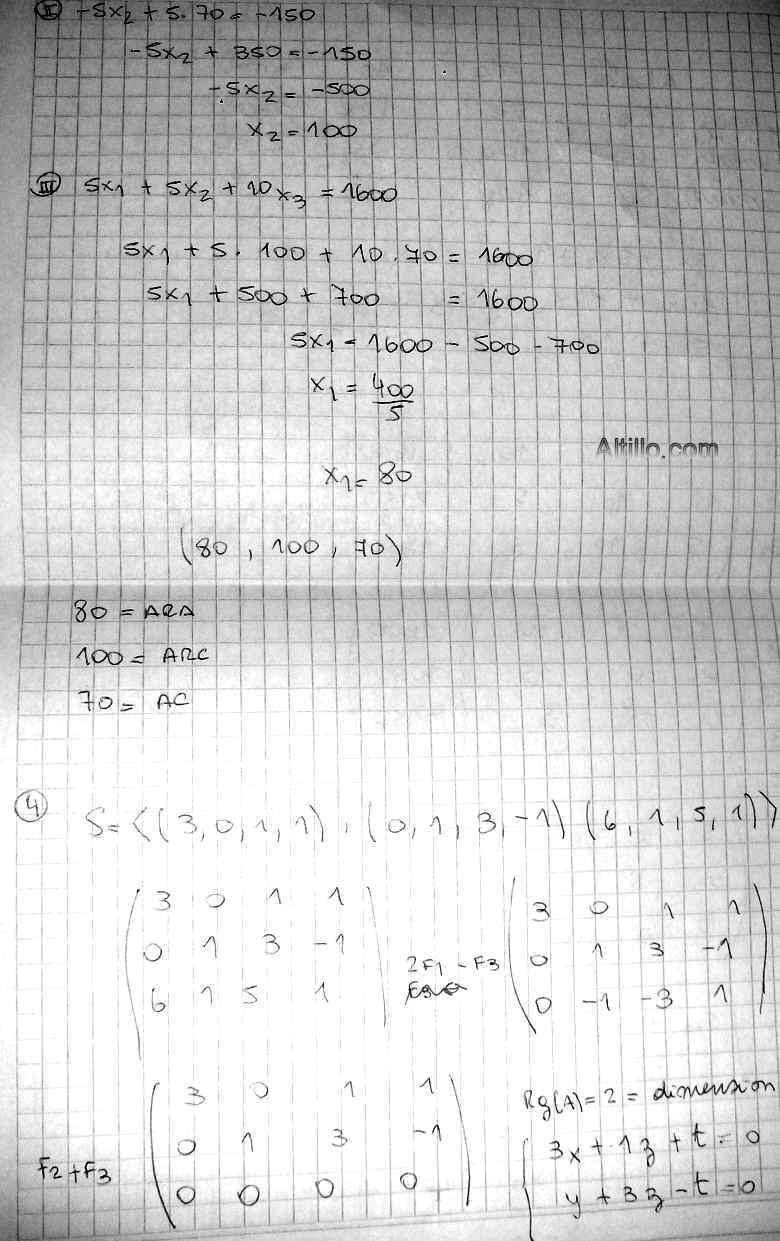 II -5x2 + 5·70 = -150
-5x2 + 350 = -150
-5x2 = -500
x2 = 100
III 5x1 + 5x2 + 10x3 = 1600
5x1 + 5· 100 + 10 · 70 = 1600
5x1 + 500 + 700 = 1600
5x1 = 1600 - 500 - 700
x1 = 400/5
Altillo.com
x1 = 80
(80, 100, 70)
80 = ARA
100 = ARC
70 = AC
4 S=<(3,0,1,1), (0,1,3,-1) (6,1,5,1)>
3 0 1 1
0 1 3 -1
6 1 5 1
2F1 - F3
3 0 1 1
0 1 3 -1
0 -1 -3 1
F2+F3
3 0 1 1
0 1 3 -1
0 0 0 0
Rg(A)=2 = dimension
3x + 1z + t = 0
y + 3z - t = 0